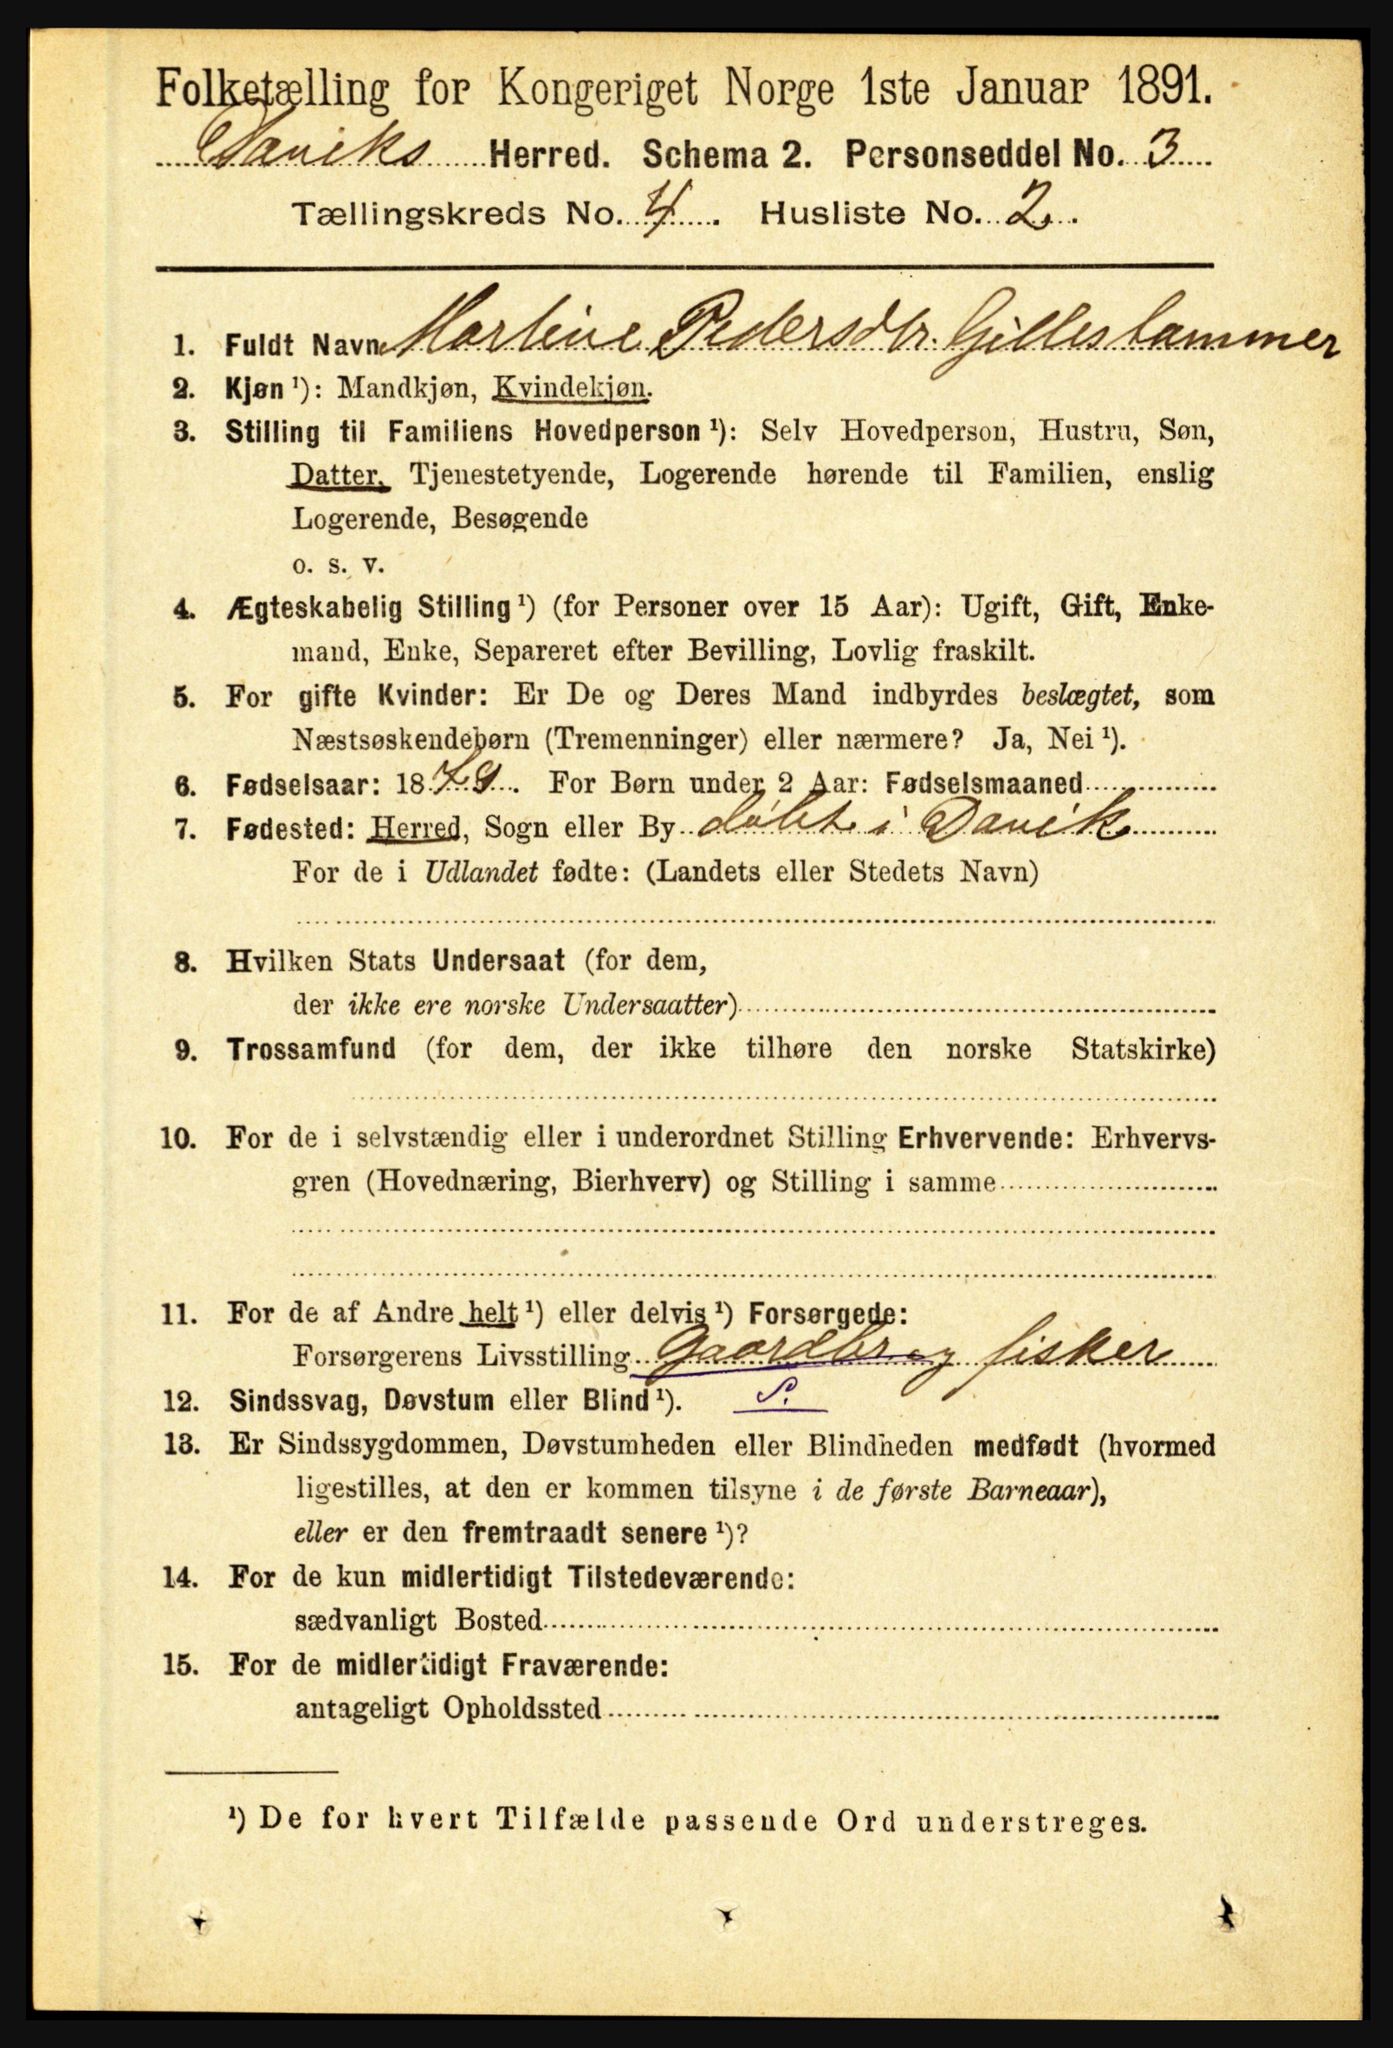 Folketælling for Kongeriget Norge 1ste Januar 1891.
Daviks Herred. Schema 2. Personseddel No. 3
Tællingskreds No. 4. Husliste No. 2.
1. Fuldt Navn Martine Pedersdtr. Gilleshammer
2. Kjøn ¹): Mandkjøn, Kvindekjøn.
3. Stilling til Familiens Hovedperson ¹): Selv Hovedperson, Hustru, Søn,
Datter, Tjenestetyende, Logerende hørende til Familien, enslig
Logerende, Besøgende
o. s. v.
4. Ægteskabelig Stilling ¹) (for Personer over 15 Aar): Ugift, Gift, Enke-
mand, Enke, Separeret efter Bevilling, Lovlig fraskilt.
5. For gifte Kvinder: Er De og Deres Mand indbyrdes beslægtet, som
Næstsøskendebørn (Tremenninger) eller nærmere? Ja, Nei ¹).
6. Fødselsaar: 1879. For Børn under 2 Aar: Fødselsmaaned
7. Fødested: Herred, Sogn eller By døbt i Davik
For de i Udlandet fødte: (Landets eller Stedets Navn)
8. Hvilken Stats Undersaat (for dem,
der ikke ere norske Undersaatter)
9. Trossamfund (for dem, der ikke tilhøre den norske Statskirke)
10. For de i selvstændig eller i underordnet Stilling Erhvervende: Erhvervs-
gren (Hovednæring, Bierhverv) og Stilling i samme
11. For de af Andre helt ¹) eller delvis ¹) Forsørgede:
Forsørgerens Livsstilling gaardbr og fisker
12. Sindssvag, Døvstum eller Blind ¹). S.
13. Er Sindssygdommen, Døvstumheden eller Blindheden medfødt (hvormed
ligestilles, at den er kommen tilsyne i de første Barneaar),
eller er den fremtraadt senere ¹)?
14. For de kun midlertidigt Tilstedeværende:
sædvanligt Bosted
15. For de midlertidigt Fraværende:
antageligt Opholdssted
¹) De for hvert Tilfælde passende Ord understreges.